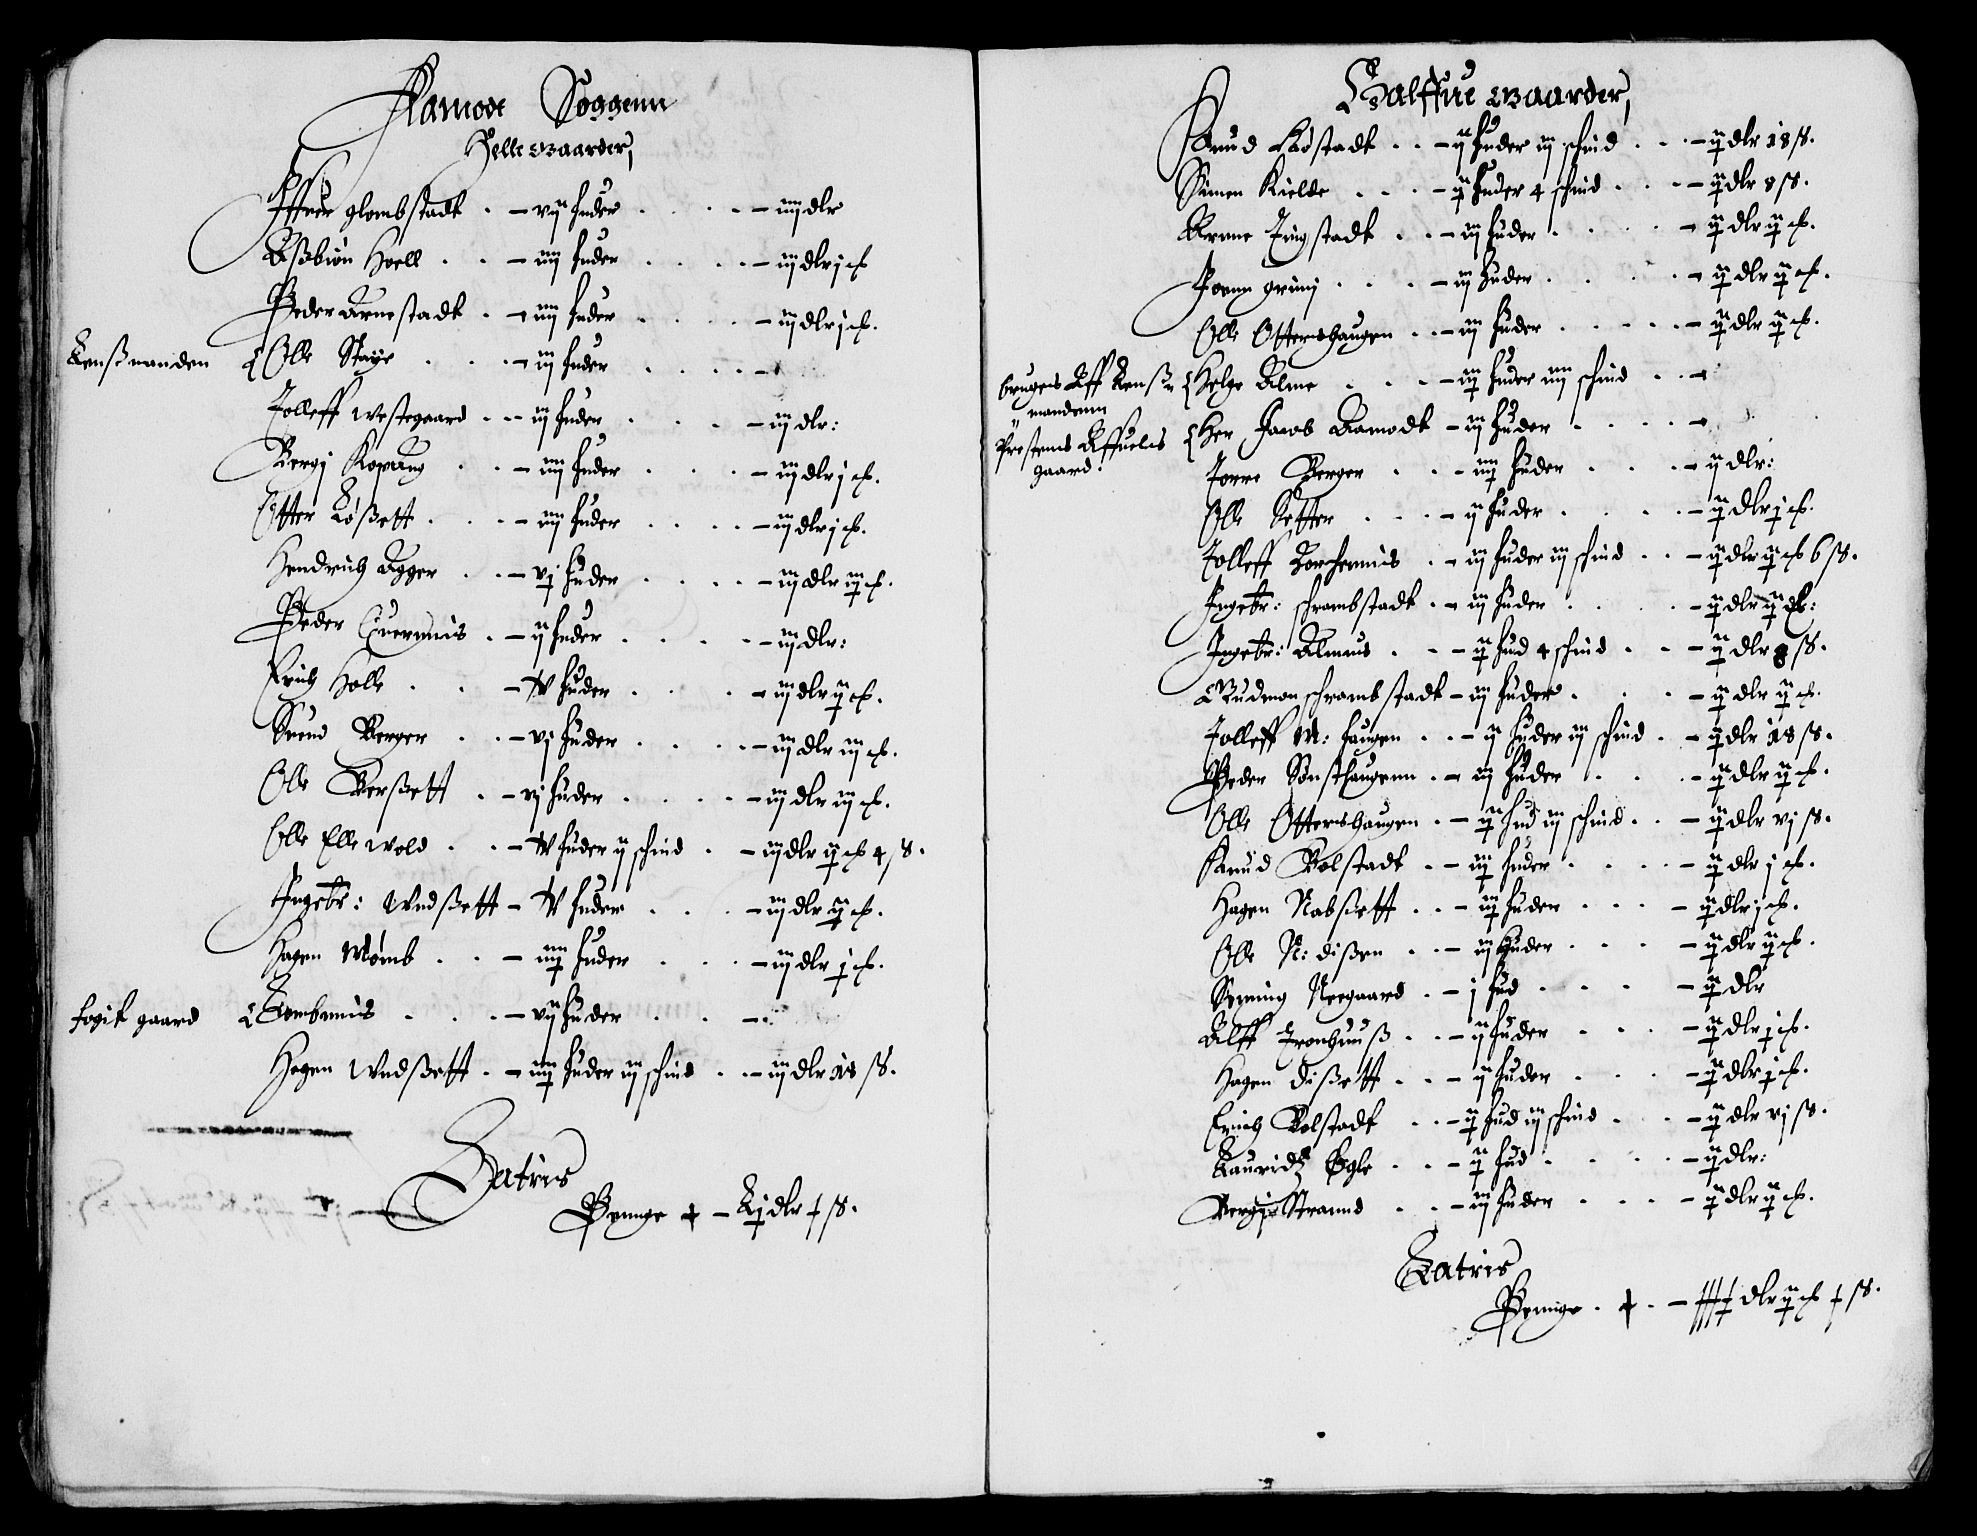 Aamodt Soggenn
Helle Gaarder,
Iffuer glombstadt . - vij huder . . . . - iiij dlr
Aßbiön Hoell . . - iiij huder . . . . - iij dlr j ort
Peder Arnestadt . - iiij huder . . . . - iij dlr j ort.
Lenßmanden { Olle Staije . . . - iij huder . . . . -
Tolleff Westegaard . . - iij huder . . . . - iij dlr:
Bergj Kopang . . - iiij huder . . . . - iij dlr j ort.
Otter Løßett . . . - iiij huder . . . . - iij dlr j ort.
Hendrich Agger . . - vj huder . . . . - iij dlr iij ort.
Peder Euermüs . - ij huder . . . . - iij dlr:
Erich Holle . . . - V huder . . . . - iij dlr ij ort.
Suend Berger . . - vj huder . . . . - iij dlr iij ort.
Olle Berßett . . - vj huder . . . . - iij dlr iij ort.
Olle Elle wold . . . - V huder ij schind . - iij dlr ij ort 4 ß.
Ingebr: Wndßett - V huder . . . - iij dlr ij ort.
Hagen Mömb . . . - iiij huder . . . - iij dlr j ort.
fogit gaard { Lombnüs . . . - vij huder . . . -
Hagen Wndßett . - iiij huder iij schind . . - iij dlr 18 ß.
Latris
Penge - Lj dlr ß.
Halffue Gaarder,
Knud Løstadt . . - ij huder iij schind . . . - ij dlr 18 ß.
Simen Kielde . . . - ij huder 4 schind . . . - ij dlr 8 ß.
Arne Tingstadt . . - iij huder . . . . - ij dlr ij ort.
Joenn grünj . . . - iij huder . . . . - ij dlr ij ort.
Olle Ottershaugen . . - iij huder . . . . - ij dlr ij ort.
bruges Aff Lenß-
mandenn { Helge Alme . . . - iij huder iiij schind . . -
Prestens Affuels
gaard: { Her Jacob Aamodt - iij huder . . . . -
Joere Berger . . . - iiij huder . . . - ij dlr:
Olle Setter . . . - ij huder . . . . - ij dlr j ort.
Tolleff . - iij huder iij schind . . - ij dlr ij ort 6 ß.
Ingebr: schrambstadt . - iij huder . . . - ij dlr ij ort:
Ingebr: Almüs . . - ij hud 4 schind . . - ij dlr 8 ß.
Gudmon schrambstadt - iij huder . . . - ij dlr ij ort.
Tolleff M: haugen . . - ij huder iij schind . - ij dlr 18 ß.
Peder Sønsthaugenn . - iij huder . . . - ij dlr ij ort.
Olle Ottershaugen . - ij hud iij schind . . - ij dlr vj ß.
Knud Bolstadt . . - iij huder . . . . - ij dlr j ort.
Hagen Nabßett . . - iij huder . . . - ij dlr j ort.
Olle N: dißen . . - iij huder . . . - ij dlr ij ort.
Neegaard . - j hud . . . . - ij dlr
Alff Tronhuuß . . - ij huder . . . - ij dlr j ort.
Hagen dißett . . . - ij huder . . . - ij dlr j ort.
Erich Bolstadt . . - ij hud iij schind . . . - ij dlr vj ß.
Lauridtz Øgle . . . - ij hud . . . . - ij dlr:
Bergj Strannd . . - iij huder . . . - ij dlr ij ort.
Latris
Penge . . - dlr ij ort ß.